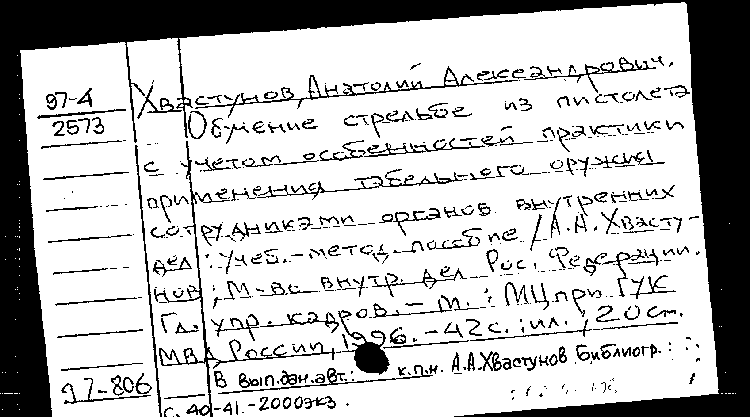 97-4
2573
Хвастунов, Анатолий Александрович.
Обучение стрельбе из пистолета
с учетом особенностей практики
применения табельного оружия
сотрудниками органов внутренних
дел : Учеб.-метод. пособие / А.А. Хвасту-
нов ; М-во внутр. дел Рос. Федерации.
Гл. упр. кадров. - М. : МЦ при ГУК
МВД России, 1996. - 42 с. : ил. ; 20 см.
97-806
В вып.дан.авт.: к.п.н. А.А.Хвастунов. Библиогр.:
с. 40-41. - 2000экз.